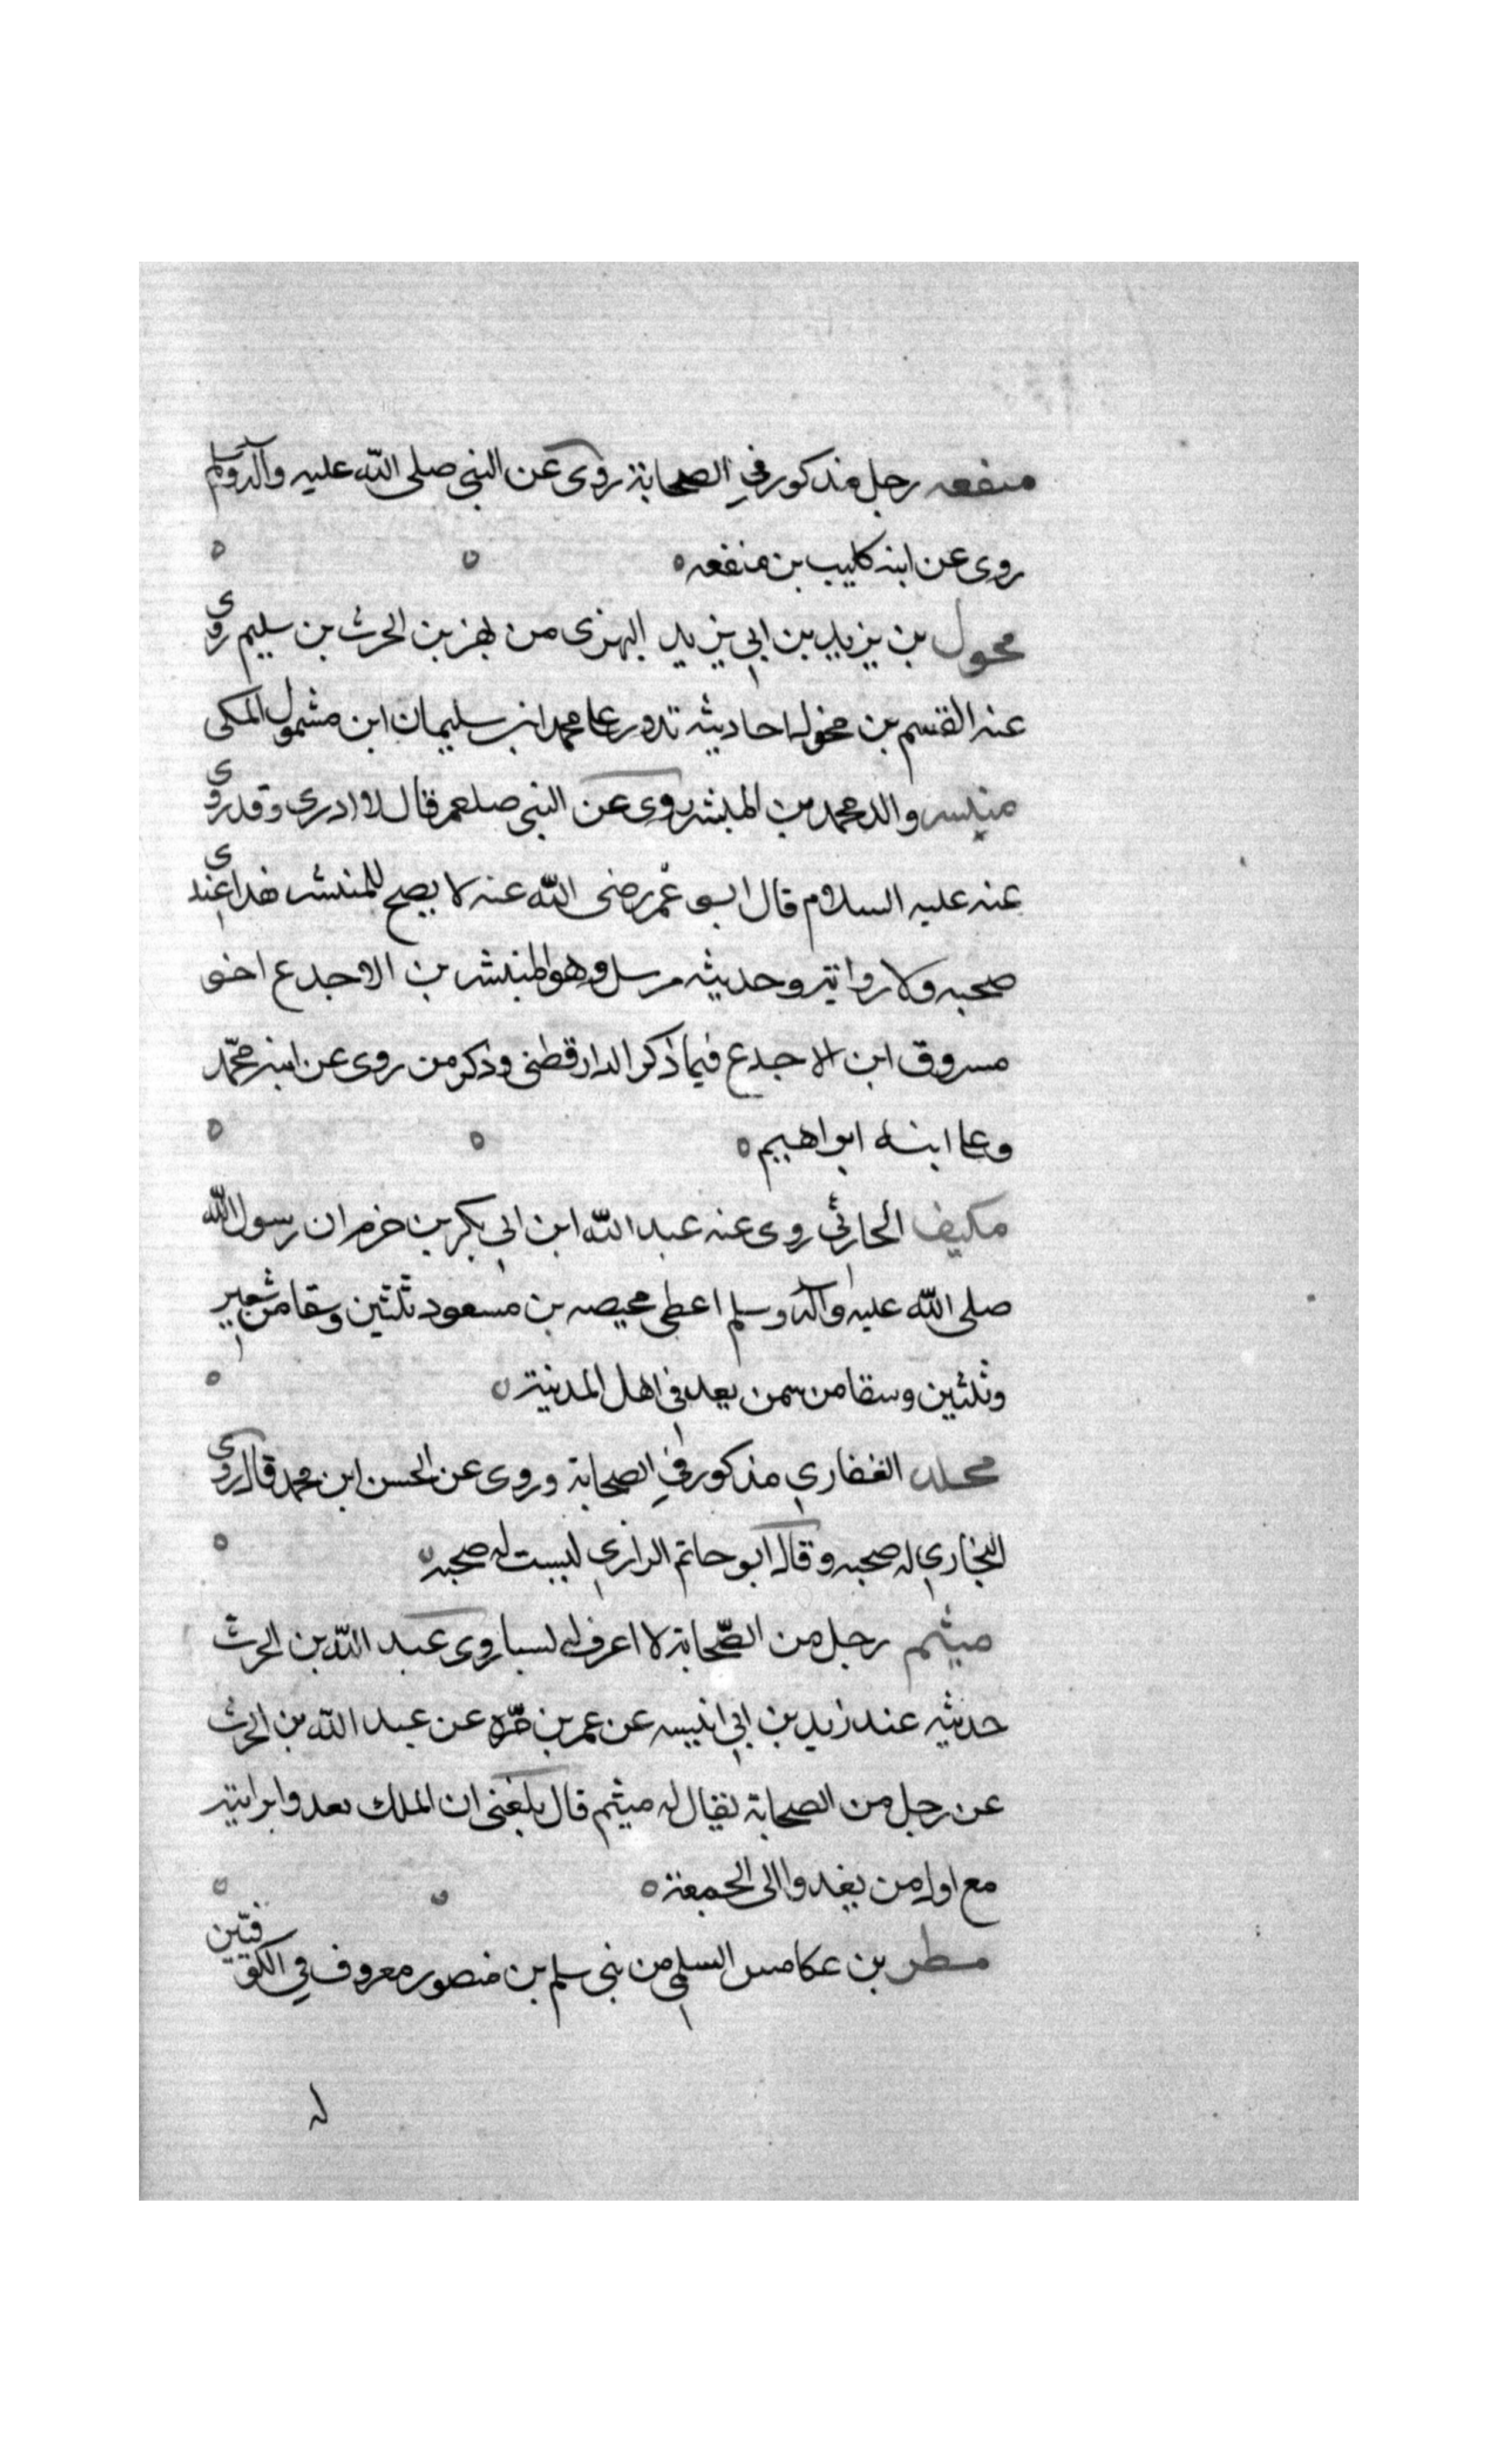 منفعه رجل مذكور في الصحابة روى عن النبي صلى الله عليه وآله وسلم
روى عن ابنه كليب بن منفعه
محول بن يزيد بن ابي يزيد البهزى من بهز بن الحرث بن سليم روى
عنه القسم بن مخول احاديثه تدور على محمد ابن سليمان ابن مشمول المكى
والد محمد بن المنتشر روى عن النبي صلعم قال لا ادرى وقد روى
عنه عليه السلام قال ابو عمر رضى الله عنه لا يصح للمنتشر هذا عندى
صحبه ولا رواية وحديثه مرسل وهو المنتشر بن الاجدع اخو
مسروق ابن الاجدع فيما ذكر الدارقطنى وذكر من روى عن ابنه محمد
وعلى ابنه ابراهيم
مكيف الحارثي روى عنه عبد الله ابن ابي بكر بن حزم ان رسول الله
صلى الله عليه وآله وسلم اعطى محيصه بن مسعود ثلثين وسقا من شعير
وثلثين وسقا من سمن يعد في اهل المدينة
الغفاري مذكور في الصحابة وروى عن الحسن ابن محمد قال روى
البخاري له صحبه وقال ابو حاتم الرازي ليست له صحبه
ميثم رجل من الصحابة لا اعرف له نسبا روى عبد الله بن الحرث
حديثه عند زيد بن ابي انيسه عن عمر بن مره عن عبد الله بن الحرث
عن رجل من الصحابة يقال له ميثم قال بلغني ان الملك بعدوا برايته
مع اول من يغدوا الى الجمعة
مطر بن عكامس السلمي من بني سليم بن منصور معروف في الكوفيين
له